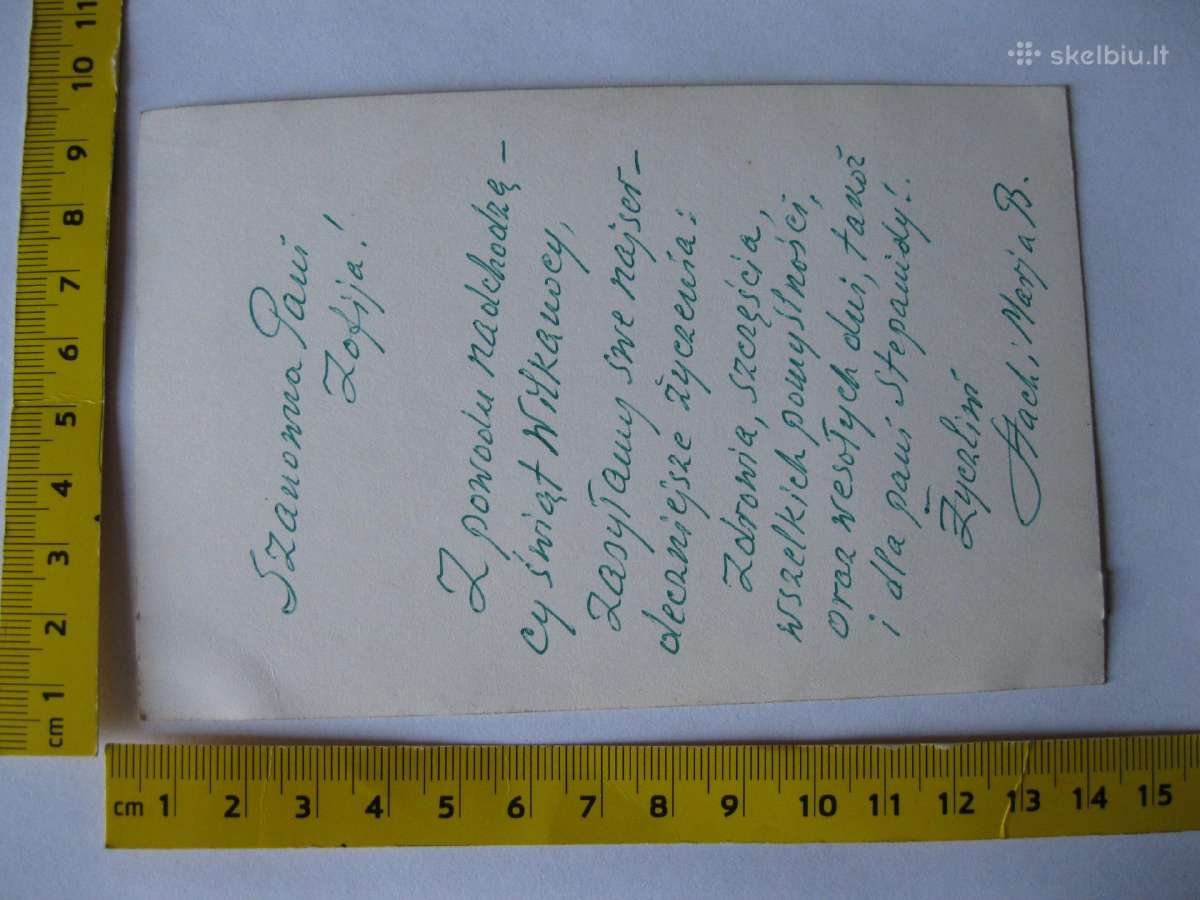 skelbiu.lt
Szanowna Pani
Zofija!
Z powodu nadchodzą-
cy świąt Wilkanocy,
zasyłamy swe najser-
deczniejsze życzenia:
Zdrowia, szczęścia,
wszelkich pomyślności,
oraz wesołych dni, takoż
i dla pani Stepanidy!.
Życzliwi
Stach i Marja B.
cm 1 2 3 4 5 6 7 8 9 10 11
cm 1 2 3 4 5 6 7 8 9 10 11 12 13 14 15